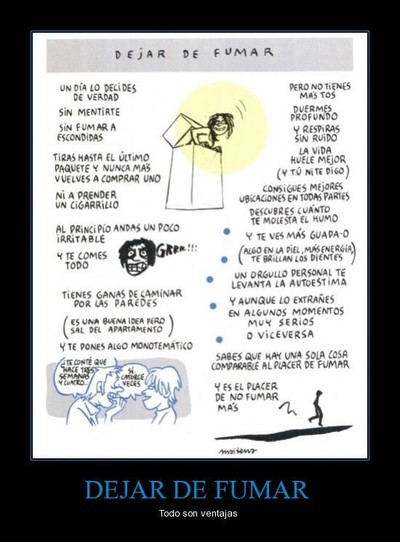 DEJAR DE FUMAR
UN DÍA LO DECIDES
DE VERDAD
SIN MENTIRTE
SIN FUMAR A
ESCONDIDAS
TIRAS HASTA EL ÚLTIMO
PAQUETE Y NUNCA MAS
VUELVES A COMPRAR UNO
NI A PRENDER
UN CIGARRILLO
AL PRINCIPIO ANDAS UN POCO
IRRITABLE
GRRR!!!
Y TE COMES
TODO
TIENES GANAS DE CAMINAR
POR LAS PAREDES
(ES UNA BUENA IDEA PERO
SAL DEL APARTAMENTO)
Y TE PONES ALGO MONOTEMÁTICO
¿TE CONTÉ QUE
HACE TRES
SEMANAS
Y CUATRO...
SÍ
CATORCE
VECES
PERO NO TIENES
MAS TOS
DUERMES
PROFUNDO
Y RESPIRAS
SIN RUIDO
LA VIDA
HUELE MEJOR
(Y TÚ NI TE DIGO)
CONSIGUES MEJORES
UBICACIONES EN TODAS PARTES
DESCUBRES CUÁNTO
TE MOLESTA EL HUMO
Y TE VES MÁS GUAPA-O
(ALGO EN LA PIEL, MÁS ENERGÍA,
TE BRILLAN LOS DIENTES)
UN ORGULLO PERSONAL TE
LEVANTA LA AUTOESTIMA
Y AUNQUE LO EXTRAÑES
EN ALGUNOS MOMENTOS
MUY SERIOS
O VICEVERSA
SABES QUE HAY UNA SOLA COSA
COMPARABLE AL PLACER DE FUMAR
Y ES EL PLACER
DE NO FUMAR
MÁS
maitena
DEJAR DE FUMAR
Todo son ventajas